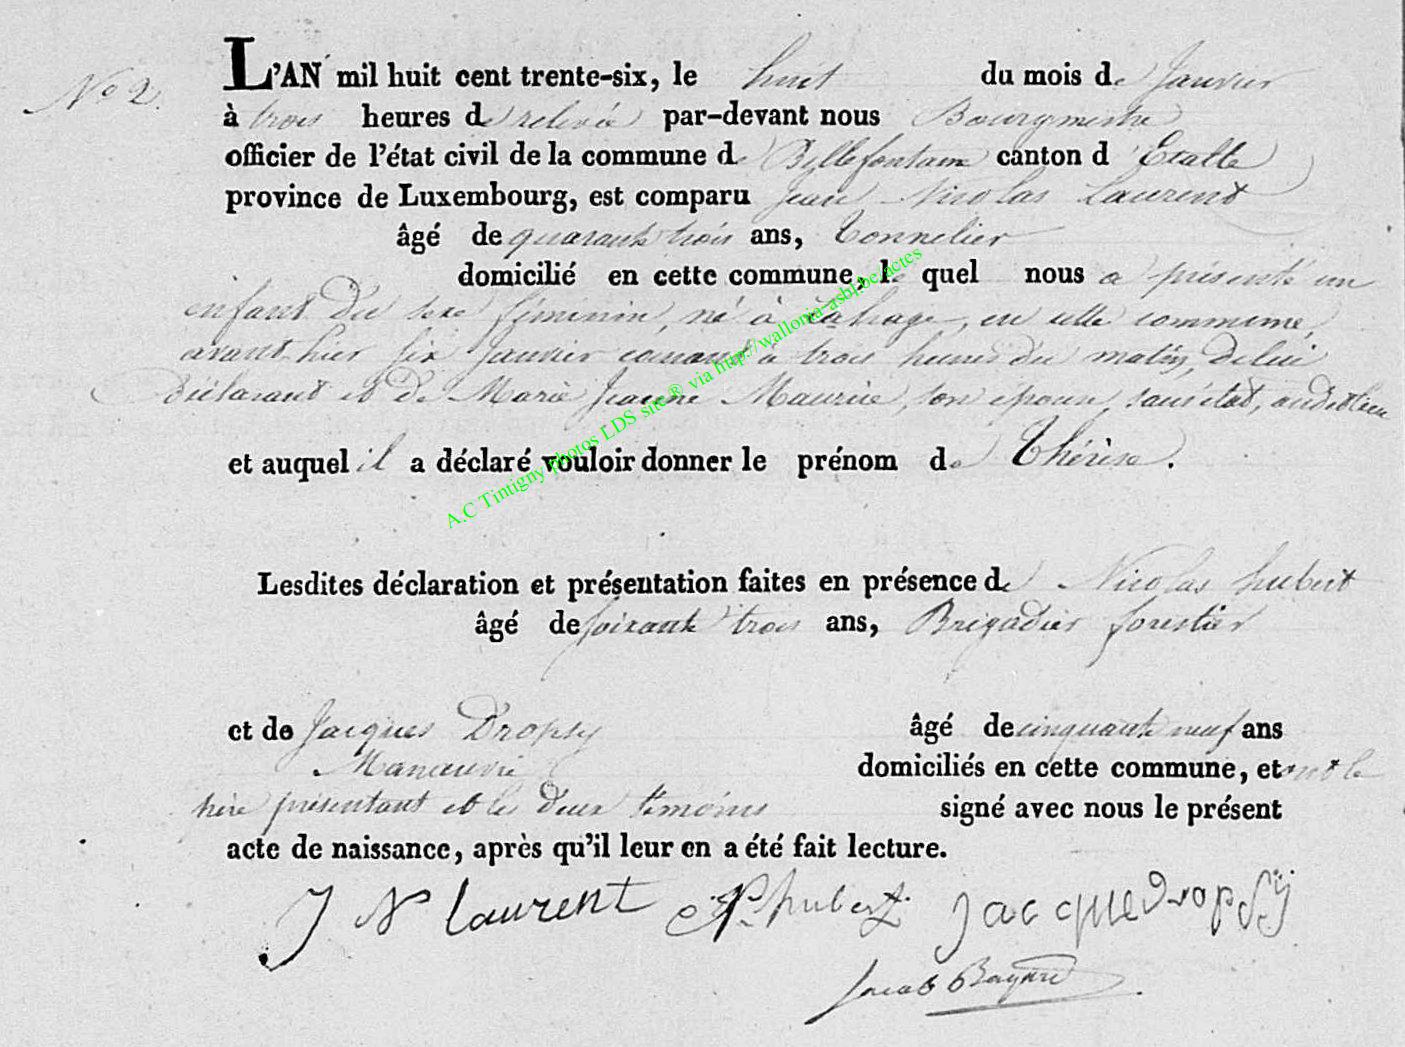 No 2.
L'AN mil huit cent trente-six, le huit du mois de Janvier
à trois heures de relevée par-devant nous Bourgmestre
officier de l'état civil de la commune de Bellefontaine canton d'Etalle
province de Luxembourg, est comparu Jean Nicolas Laurent
âgé de quarante trois ans, Tonnelier
domicilié en cette commune, le quel nous a présenté un
enfant du sexe féminin, né à Lahage, en cette commune,
avant hier six Janvier courant à trois heures du matin, de lui
Déclarant et de Marie Jeanne Maurice, son épouse, sans état, audit lieu
et auquel il a déclaré vouloir donner le prénom de Thérèse.
Lesdites déclaration et présentation faites en présence de Nicolas hubert
âgé de soixante trois ans, Brigadier forestier
et de Jacques Dropsy âgé de cinquante neuf ans
Manoeuvre domiciliés en cette commune, et ont le
père présentant et les deux témoins signé avec nous le présent
acte de naissance, après qu'il leur en a été fait lecture.
J N laurent hubert Jacque dropsÿ
Jacob
A.C Tintigny photos LDS site® via http://wallonia-asbl.be/actes